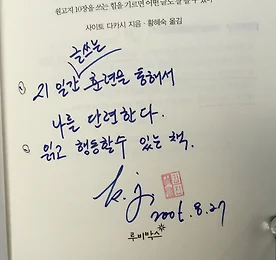 원고지 10장을 쓰는 힘을 기르면 어떤 글도 쓸 수 있다!
사이토 다카시 지음 · 황혜숙 옮김
글쓰는
① 21일간 훈련을 통해서
나를 단련한다.
② 읽고 행동할수 있는 책.
k.j.
2005. 8. 27
루비박스